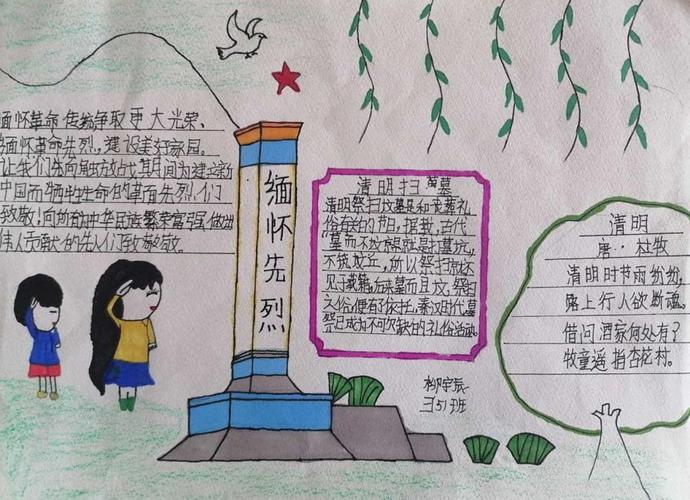 缅怀革命传统争取更大光荣、
缅怀革命先烈,建设美好家园。
让我们先向解放战其期间为建立新
中国而牺牲生命的革命先烈们
致敬!向所有中华民族繁荣富强做出
伟人贡献的先人们致敬。
缅怀先烈
清明扫墓
清明祭扫坟墓是和丧葬礼
俗有关的节日,据载,古代
"墓而不坟",就是说只打墓坑,
不筑坟丘,所以祭扫就
见于载籍,后来墓而且坟,祭扫
之俗便有了依托,秦汉时代,墓
祭已成为不可欠缺的礼俗活动。
清明
唐·杜牧
清明时节雨纷纷,
路上行人欲断魂。
借问酒家何处有?
牧童遥指杏花村。
柳宇辰
三5班